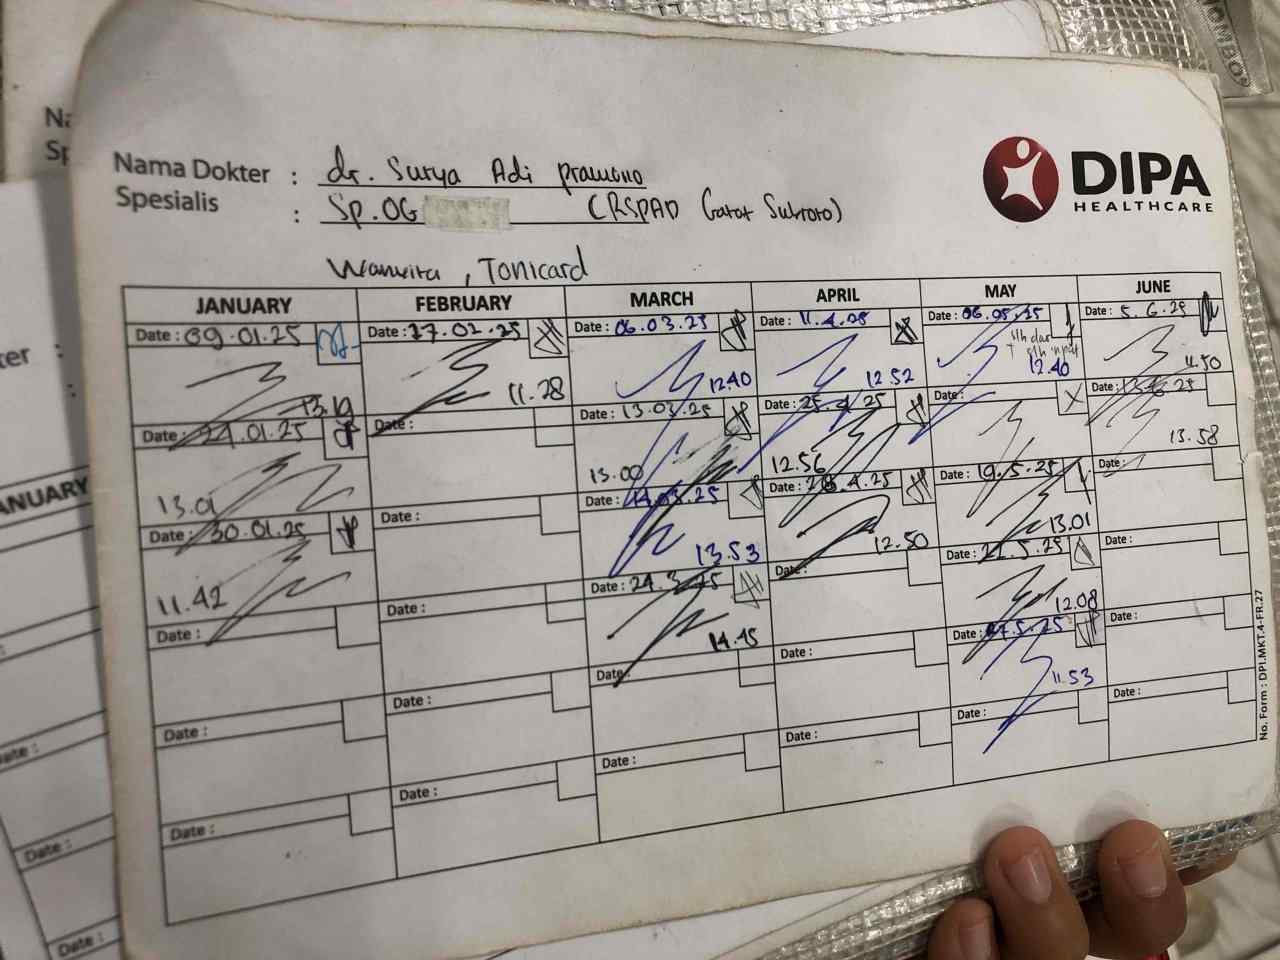 Nama Dokter : dr. Surya Adi pramono
Spesialis : Sp.OG (RSPAD Gatot Subroto)
DIPA
HEALTHCARE
Wanvita , Tonicard
JANUARY FEBRUARY MARCH APRIL MAY JUNE
Date : 09.01.25
13.19
Date : 24.01.25
13.01
Date : 30.01.25
11.42
Date :
Date :
Date :
Date : 17.02.25
11.28
Date :
Date :
Date :
Date :
Date :
Date : 06.03.25
12.40
Date : 13.03.25
13.00
Date : 14.03.25
13.53
Date : 24.3.25
14.45
Date :
Date :
Date : 11.4.25
12.52
Date : 25.4.25
12.56
Date : 28.4.25
12.50
Date :
Date :
Date :
Date : 06.05.25
12.40
Date :
Date : 19.5.25
13.01
Date : 21.5.25
12.08
Date : 27.5.25
11.53
Date :
Date : 5.6.25
11.50
Date : 13.6.25
13.58
Date :
Date :
Date :
Date :
No. Form : DPI.MKT.4-FR.27
Na
Sp
ter :
:
ANUARY
ate :
Date :
Date :